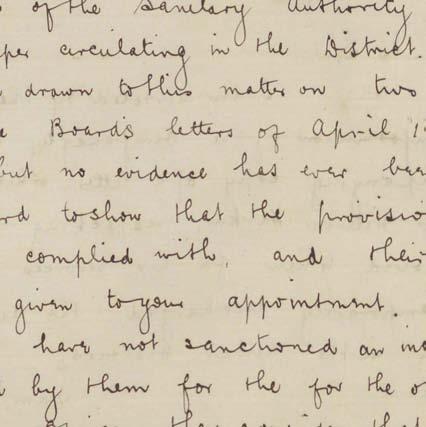 of the Sanitary Authority
circulating in the District.
drawn to this matter on two
Board's letters of April 1
but no evidence has ever
to show that the
complied with, and their
given to your appointment.
have not sanctioned an
by them for the for the